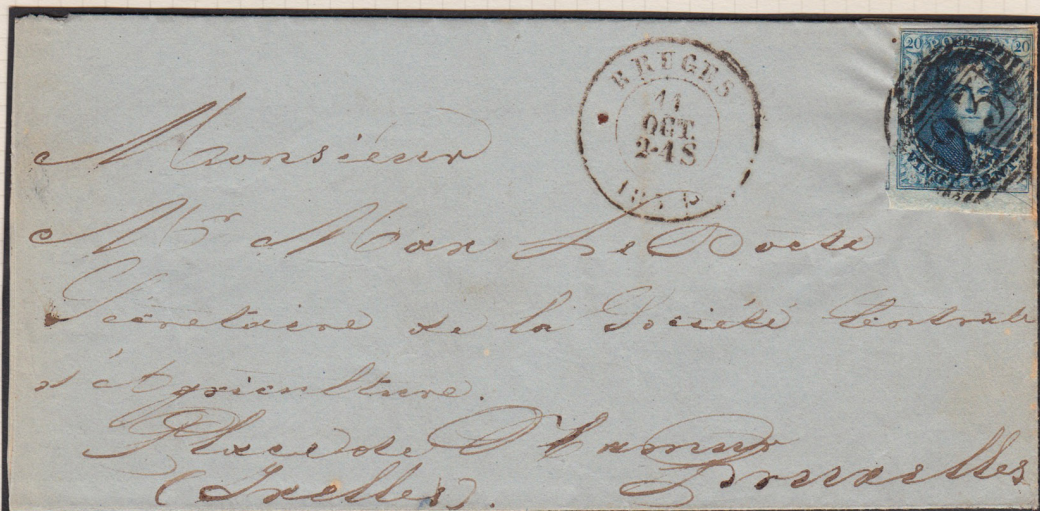 BRUGES
11
OCT.
2-4S
20 20
VINGT CENT
Monsieur
Mr Max Le Docte
Sécretaire de la Société Centrale
d'Agriculture.
Place de Namur
(Ixelles). Bruxelles